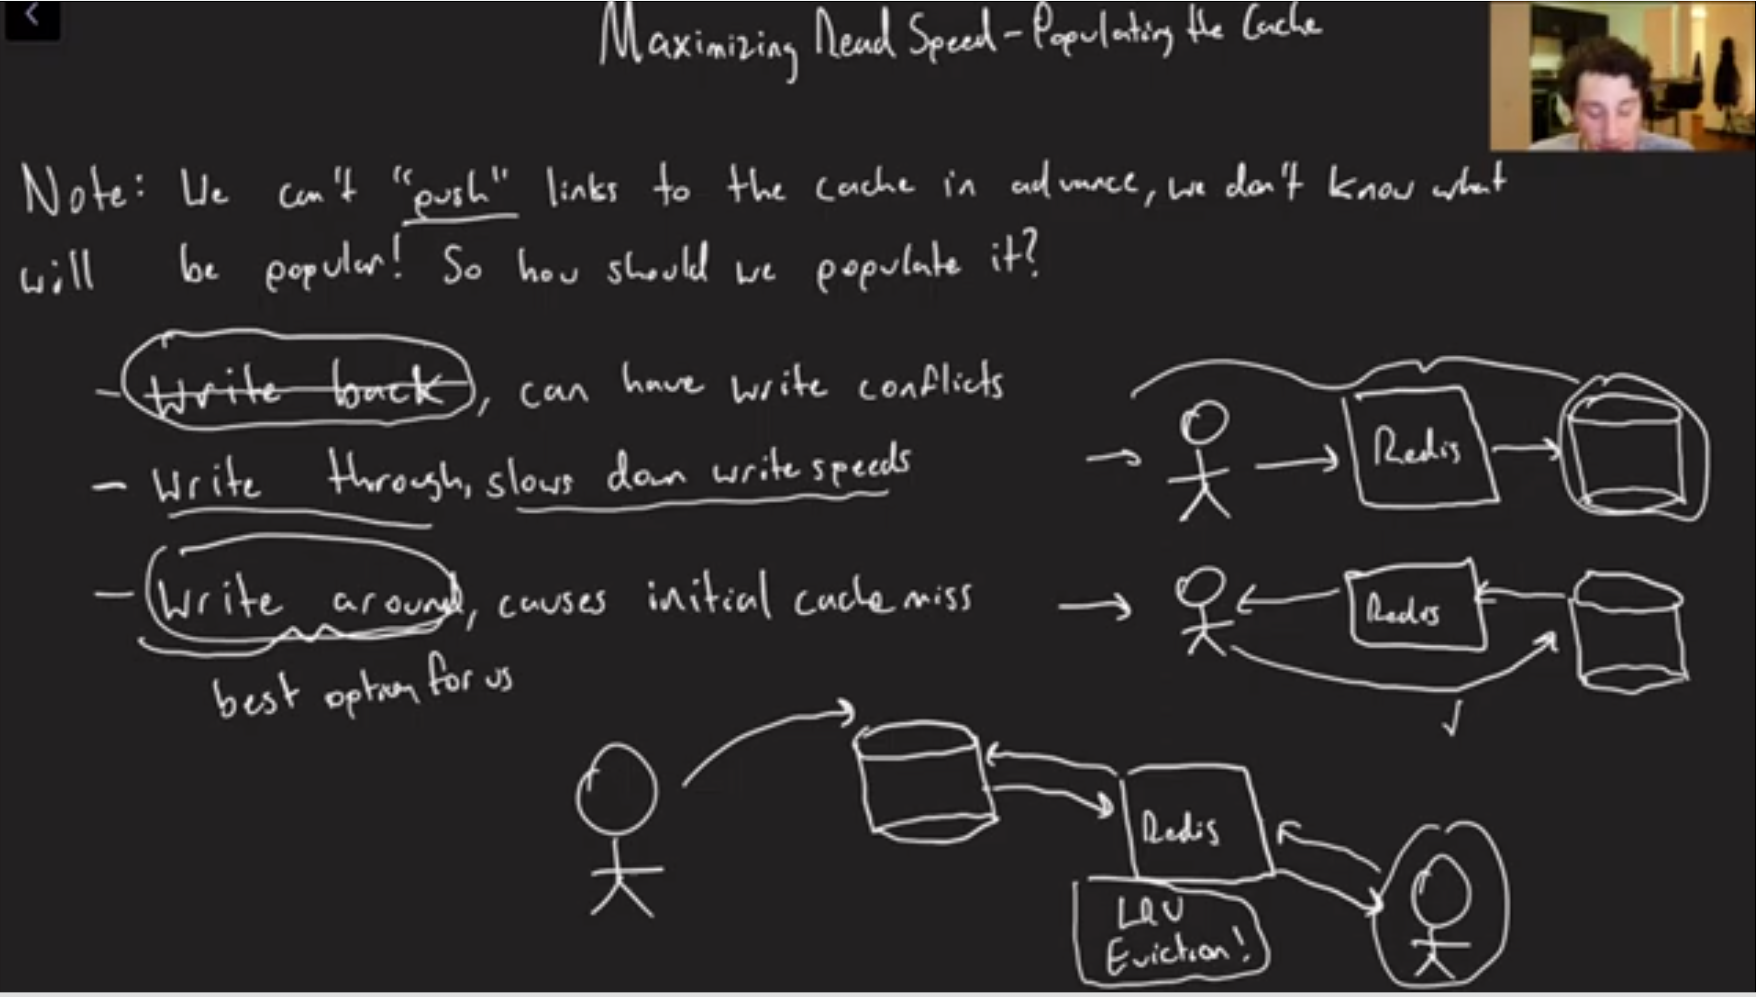 Maximizing Read Speed - Populating the Cache
Note: We can't "push" links to the cache in advance, we don't know what
will be popular! So how should we populate it?
- Write back, can have write conflicts
- Write through, slows down write speeds
Redis
- Write around, causes initial cache miss
Redis
best option for us
Redis
LRU
Eviction!